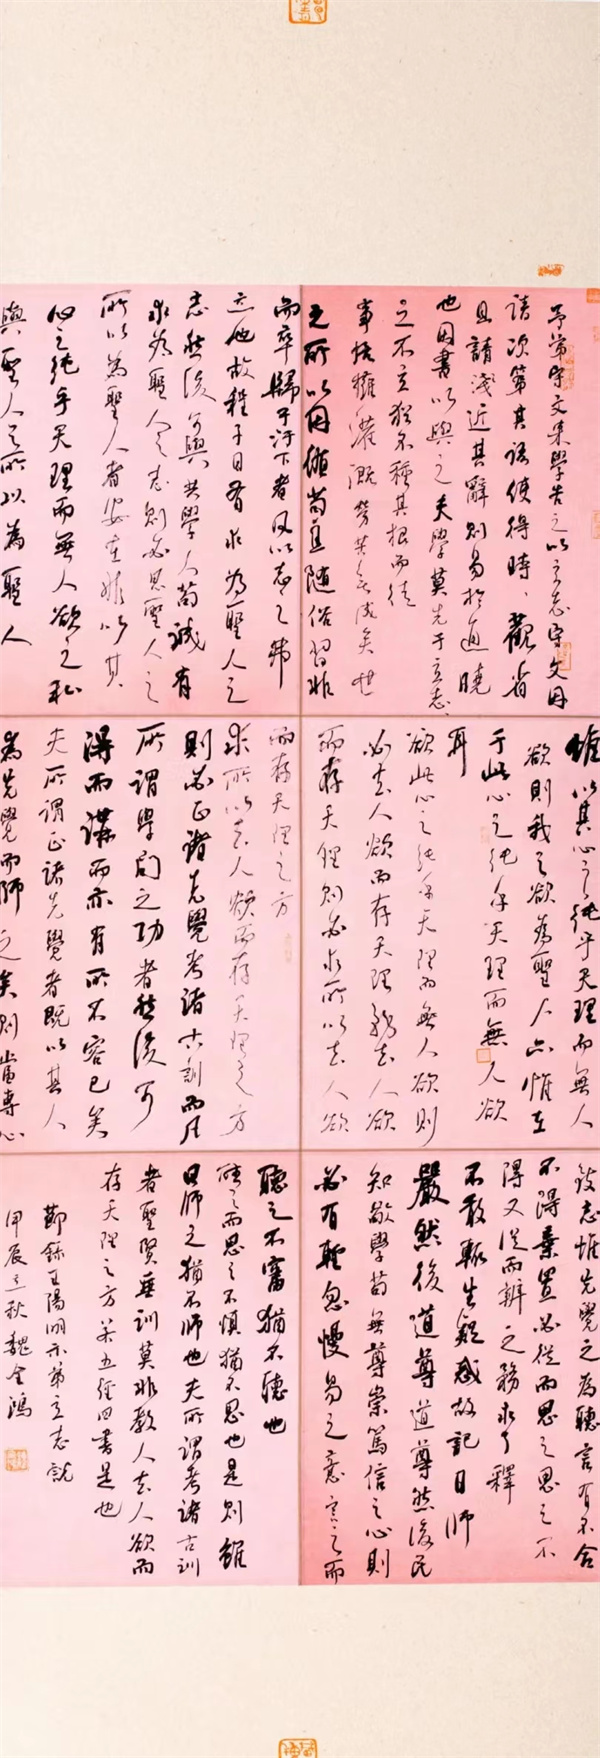 予弟守文来學告之以立志守文因
請次第其語使得時、觀省
且請淺近其辭則易於通曉
也因書以與之夫學莫先于立志、
之不立猶不種其根而徒
事培擁灌溉勞苦無成矣世
之所以因循苟且随俗習非
而卒歸于汙下者凡以志之弗
立也故程子曰有求為聖人之
志然後可與共學人苟誠有
求為聖人之志則必思聖人之
所以為聖人者安在非以其
心之純乎天理而無人欲之私
與聖人之所以為聖人
惟以其心之純乎天理而無人
欲則我之欲為聖人亦惟在
于此心之純乎天理而無人欲
耳
欲此心之純乎天理而無人欲則
必去人欲而存天理務去人欲
而存天理則必求所以去人欲
而存天理之方
求所以去人欲而存天理之方
則必正諸先覺考諸古訓而凡
所謂學問之功者然後可
得而講而亦有所不容已矣
夫所謂正諸先覺者既以其人
為先覺而師之矣則當專心
致志惟先覺之為聽言有不合
不得棄置必從而思之思之不
得又從而辨之務求了釋
不敢輒生疑惑故記曰師
嚴然後道尊道尊然後民
知敬學苟無尊崇篤信之心則
必有輕忽慢易之意言之而
聽之不審猶不聽也
聽之而思之不慎猶不思也是則雖
曰師之猶不師也夫所謂考諸古訓
者聖賢垂訓莫非教人去人欲而
存天理之方若五經四書是也
節録王陽明示弟立志説
甲辰之秋魏金鴻